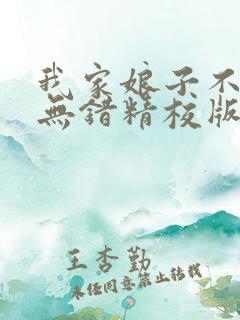 我家娘子不
無錯精校版
王杏勤
未经同意禁止转载